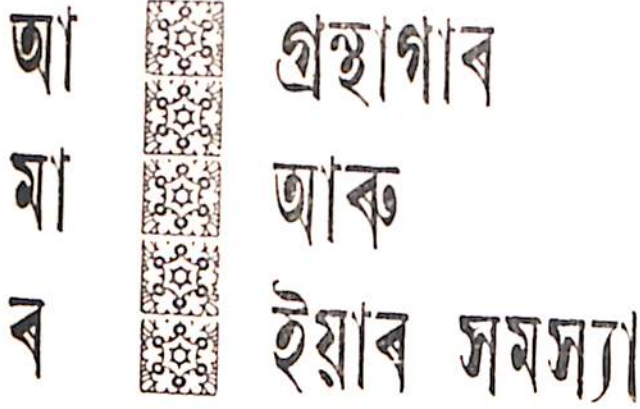 আ
মা
ৰ
গ্ৰন্থাগাৰ
আৰু
ইয়াৰ সমস্যা